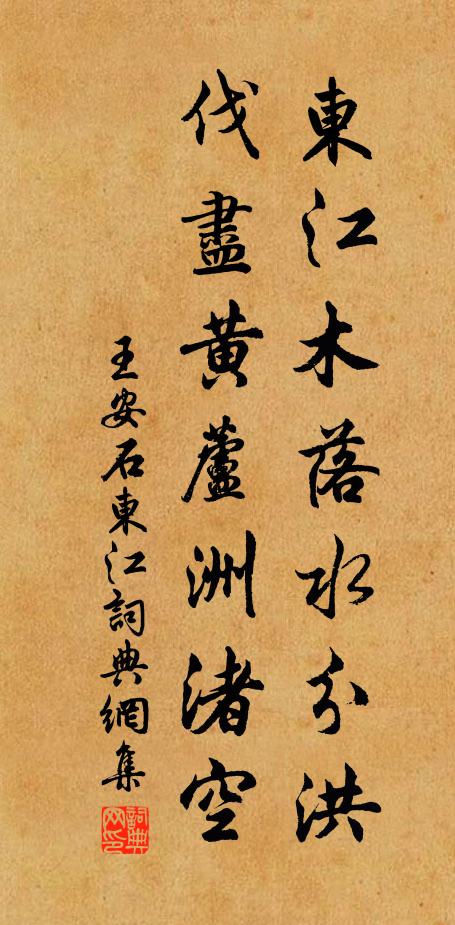 東江木落水分洪
伐盡黃蘆洲渚空
王安石東江詞典網集
詞典網印